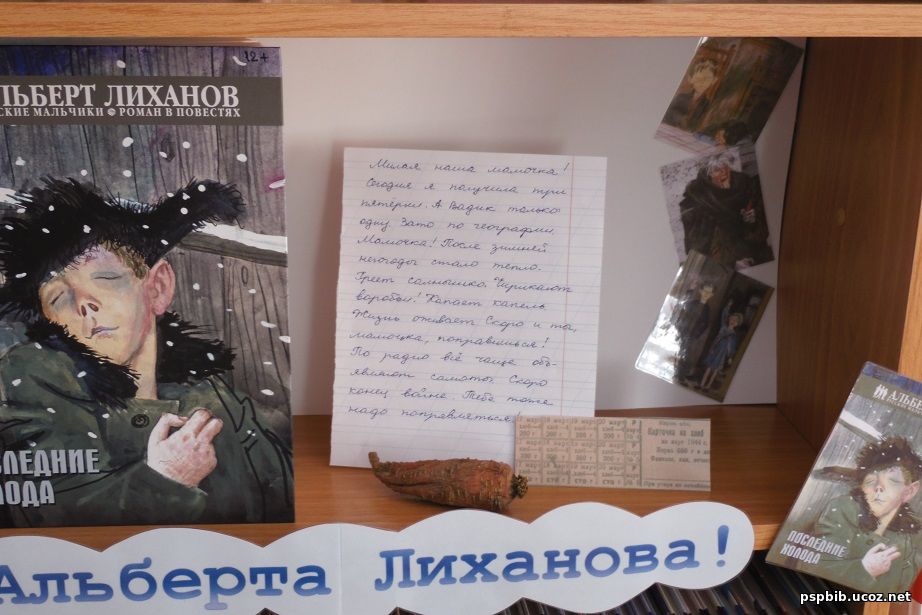 12+
ЛЬБЕРТ ЛИХАНОВ
СКИЕ МАЛЬЧИКИ РОМАН В ПОВЕСТЯХ
ОСЛЕДНИЕ
ОЛОДА
Милая наша мамочка!
Сегодня я получила три
пятёрки. А Вадик только
одну. Зато по географии.
Мамочка! После зимней
непогоды стало тепло.
Греет солнышко. Чирикают
воробьи! Капает капель
Жизнь оживает. Скоро и ты,
мамочка, поправишься!
По радио всё чаще объ-
являют салюты. Скоро
конец войне. Тебе тоже
надо поправляться!
Карточка на хлеб
на март 1944 г.
При утере не
АЛЬБЕ
ПОСЛЕДНИЕ
ХОЛОДА
Альберта Лиханова!
pspbib.ucoz.net